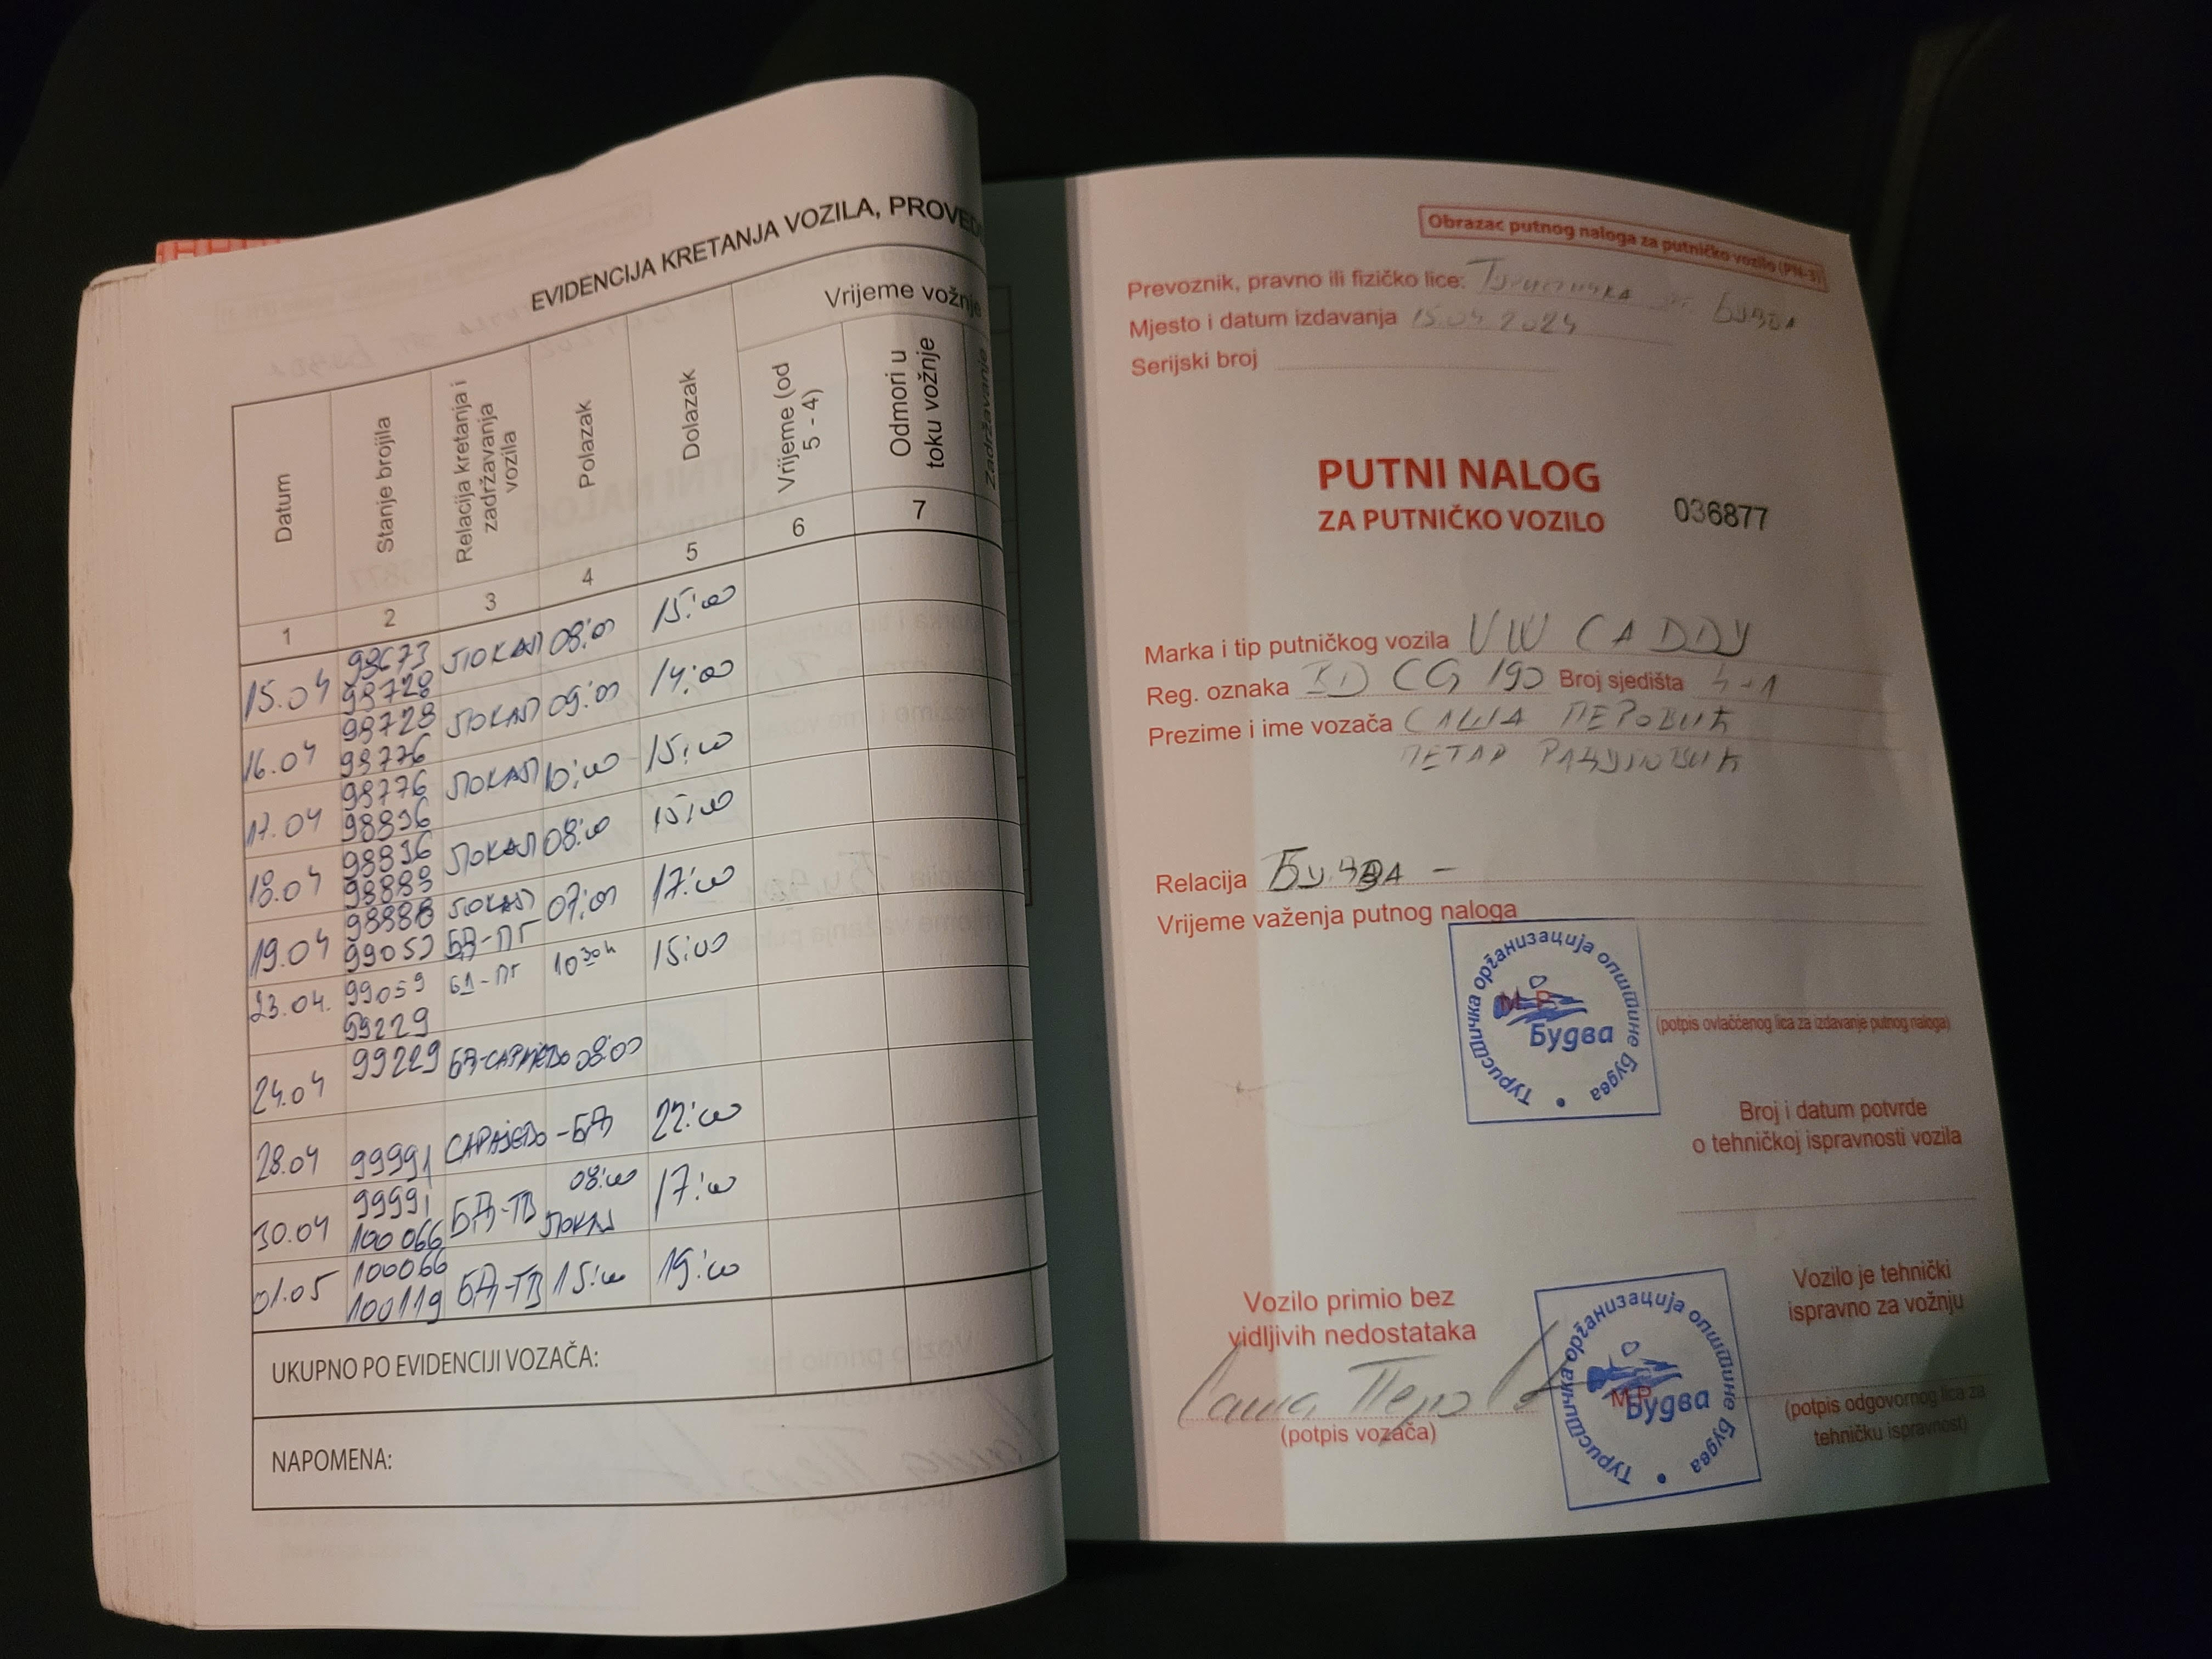 EVIDENCIJA KRETANJA VOZILA, PROVED
Datum
Stanje brojila
Relacija kretanja i zadržavanja vozila
Polazak
Dolazak
Vrijeme vožnje
Vrijeme (od 5 - 4)
Odmori u toku vožnje
Zadržavanje
1 2 3 4 5 6 7
15.04 98673 98728 ЛОКАЛ 08:00 15:00
16.04 98728 98776 ЛОКАЛ 09:00 14:00
17.04 98776 98836 ЛОКАЛ 10:00 15:00
18.04 98836 98889 ЛОКАЛ 08:00 15:00
19.04 98888 99059 ЛОКАЛ БД-ПГ 07:00 17:00
23.04. 99059 99229 БД-ПГ 10 30 h 15:00
24.04 99229 БД-САРАЈЕВО 08:00
28.04 99991 САРАЈЕВО-БД 22:00
30.04 99991 100 066 БД-ТВ 08:00 ЛОКАЛ 17:00
01.05 100066 100119 БД-ТВ 15:00 19:00
UKUPNO PO EVIDENCIJI VOZAČA:
NAPOMENA:
Obrazac putnog naloga za putničko vozilo (PN-3)
Prevoznik, pravno ili fizičko lice: Будва
Mjesto i datum izdavanja 15.04 2024
Serijski broj
PUTNI NALOG
ZA PUTNIČKO VOZILO 036877
Marka i tip putničkog vozila VW CADDY
Reg. oznaka BD CG 190 Broj sjedišta 4+1
Prezime i ime vozača САША ПЕРОВИЋ
ПЕТАР
Relacija Будва –
Vrijeme važenja putnog naloga
Туристичка организација општине Будва
М.Р.
Будва
(potpis ovlašćenog lica za izdavanje putnog naloga)
Broj i datum potvrde
o tehničkoj ispravnosti vozila
Vozilo primio bez
vidljivih nedostataka
Саша Перо
(potpis vozača)
Туристичка организација општине Будва
M.P.
Будва
Vozilo je tehnički
ispravno za vožnju
(potpis odgovornog lica za
tehničku ispravnost)